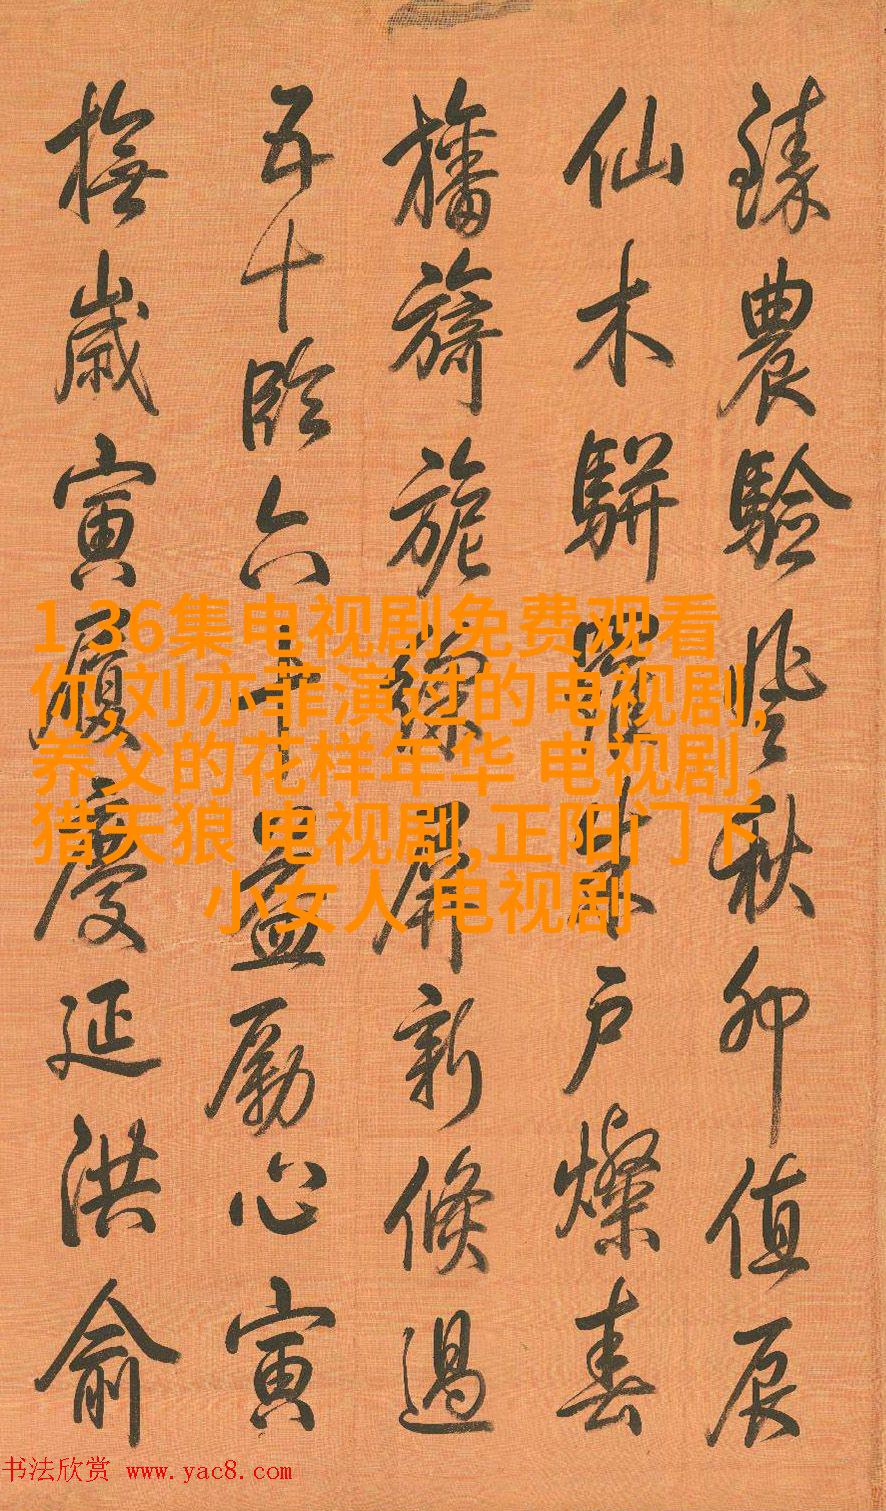 臻農驗登秋卯值辰
仙木駢羅朱户燦春
旛旖旎綵屏新倏過
五十臨六十益勵心寅
撫歲寅履慶延洪俞
1 36集电视剧免费观看
你,刘亦菲演过的电视剧,
养父的花样年华 电视剧,
猎天狼 电视剧,正阳门下
小女人 电视剧
书法欣赏 www.yac8.com